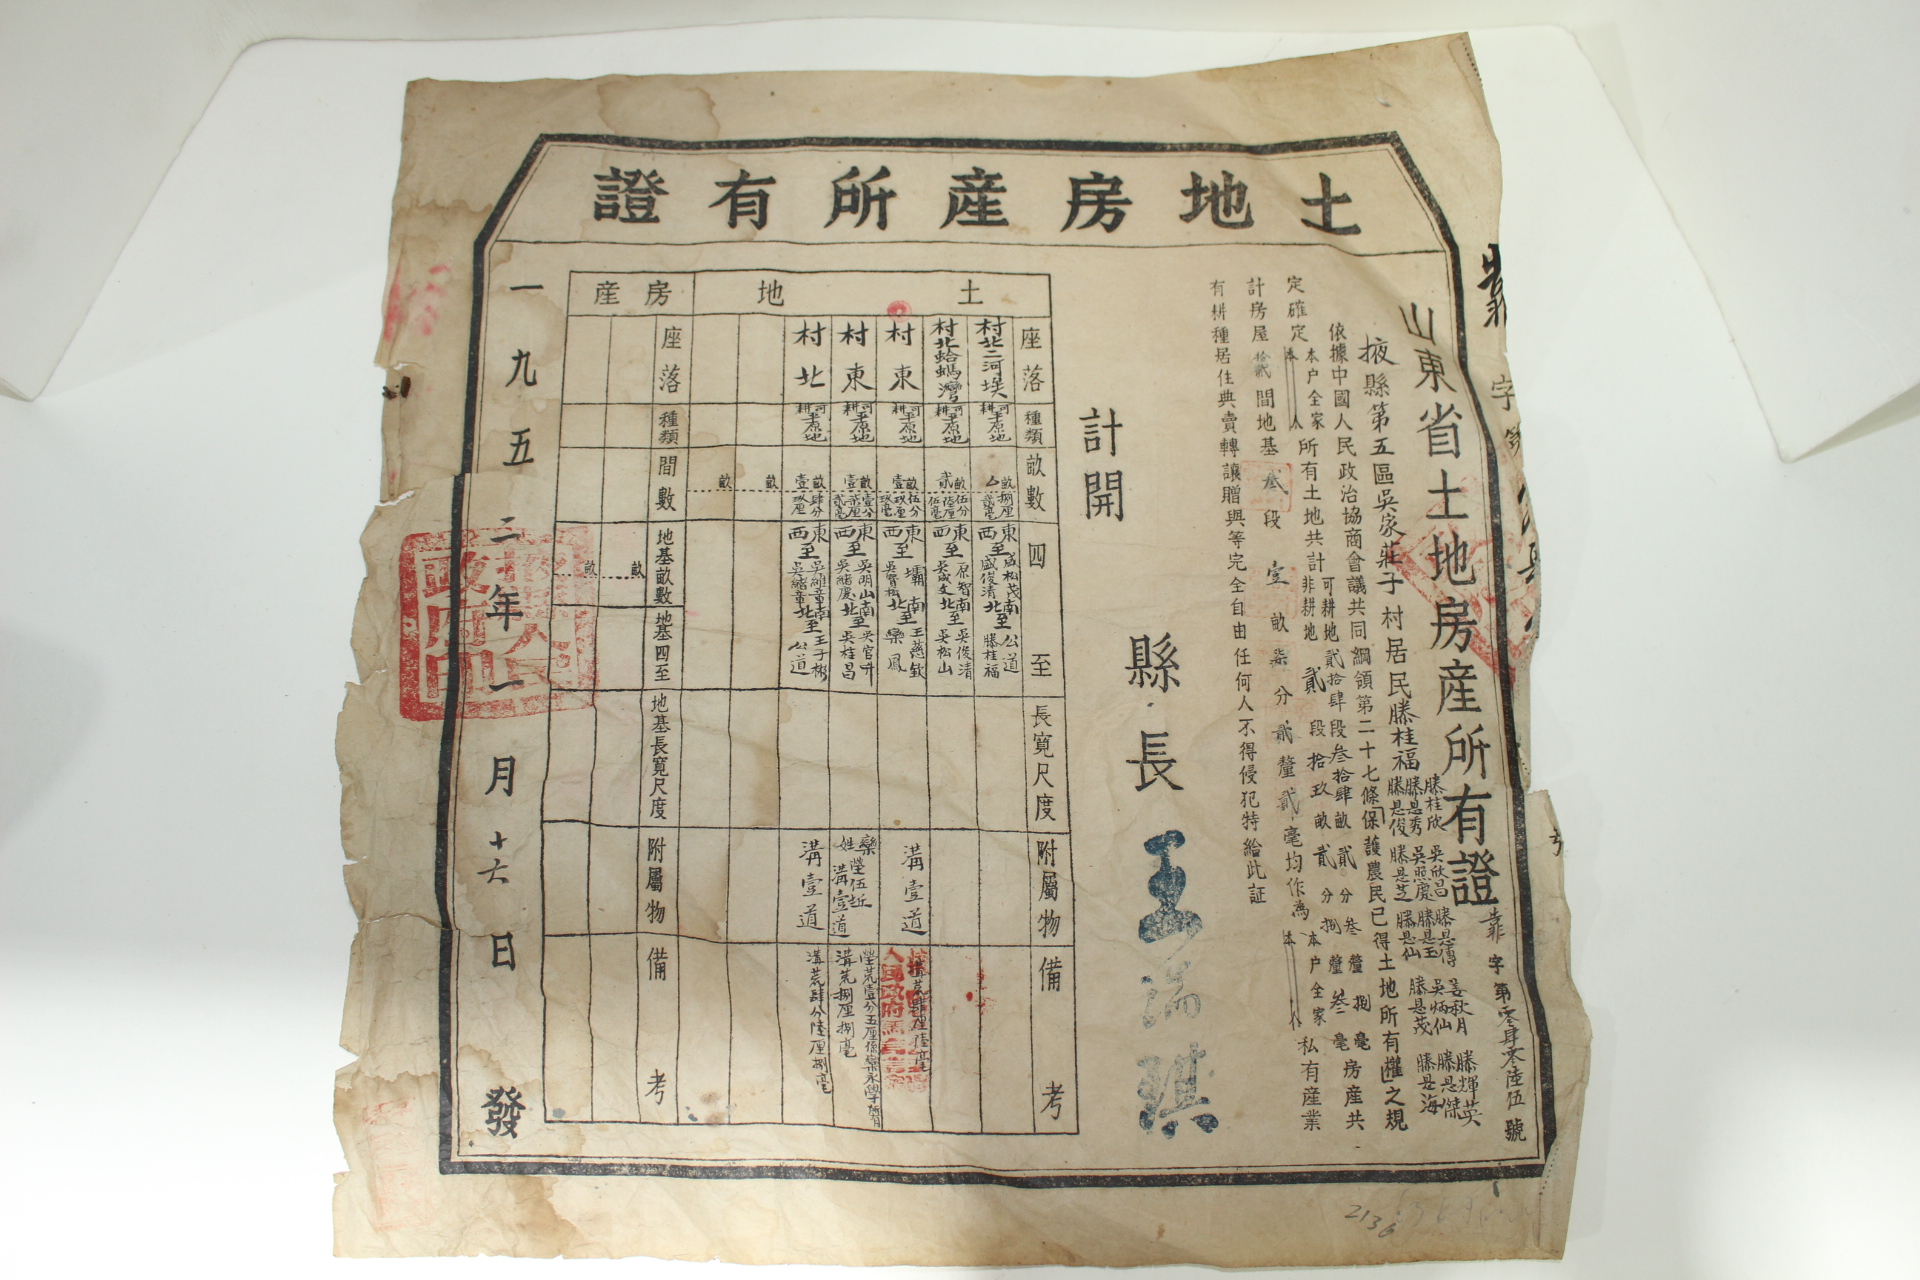 土地房産所有證
山東省土地房産所有證
靠字第零肆零陸伍號
掖縣第五區吳家莊子村居民滕桂福
滕桂欣 吳欣昌 滕是傳 姜秋月 滕輝英
滕是秀 吳照慶 滕是玉 吳炳仙 滕是傑
滕是俊 滕是芝 滕是仙 滕是茂 滕是海
依據中國人民政治協商會議共同綱領第二十七條「保護農民已得土地所有權」之規
定確定本户全家人所有土地共計可耕地貳拾肆段叁拾肆畝貳分叁釐捌毫
非耕地貳段拾玖畝貳分捌釐叁毫房產共
計房屋拾貳間地基貳段壹畝柒分貳釐貳毫均作為本户全家人私有産業
有耕種居住典賣轉讓贈與等完全自由任何人不得侵犯特給此証
計開
縣長 王瑞琪
土地
座落 種類 畝數 四至 長寬尺度 附屬物 備考
村北二河埃 可耕平原地 畝捌厘 東至盛松茂南至公道西至盛俊清北至滕桂福
村北蛤蟆灣 可耕平原地 貳畝伍分陸厘伍毫 東至原智南至吳俊清西至吳成文北至吳松山
村東 可耕平原地 壹畝伍分玖厘玖毫 東至壩南至王慈欽西至吳賢松北至欒鳳 溝壹道
村東 可耕平原地 壹畝壹分柒厘貳毫 東至吳明山南至吳官升西至吳緒慶北至吳桂昌 欒姓塋伍坵溝壹道 溝荒捌厘捌毫
村北 可耕平原地 壹畝肆分玖厘 東至吳維章南至王子彬西至吳緒章北至公道 溝壹道 溝荒肆分陸厘捌毫
畝
畝
房産
座落 種類 間數 地基畝數 地基四至 地基長寬尺度 附屬物 備考
畝
畝
一九五二年一月十六日發
靠
字第
2136